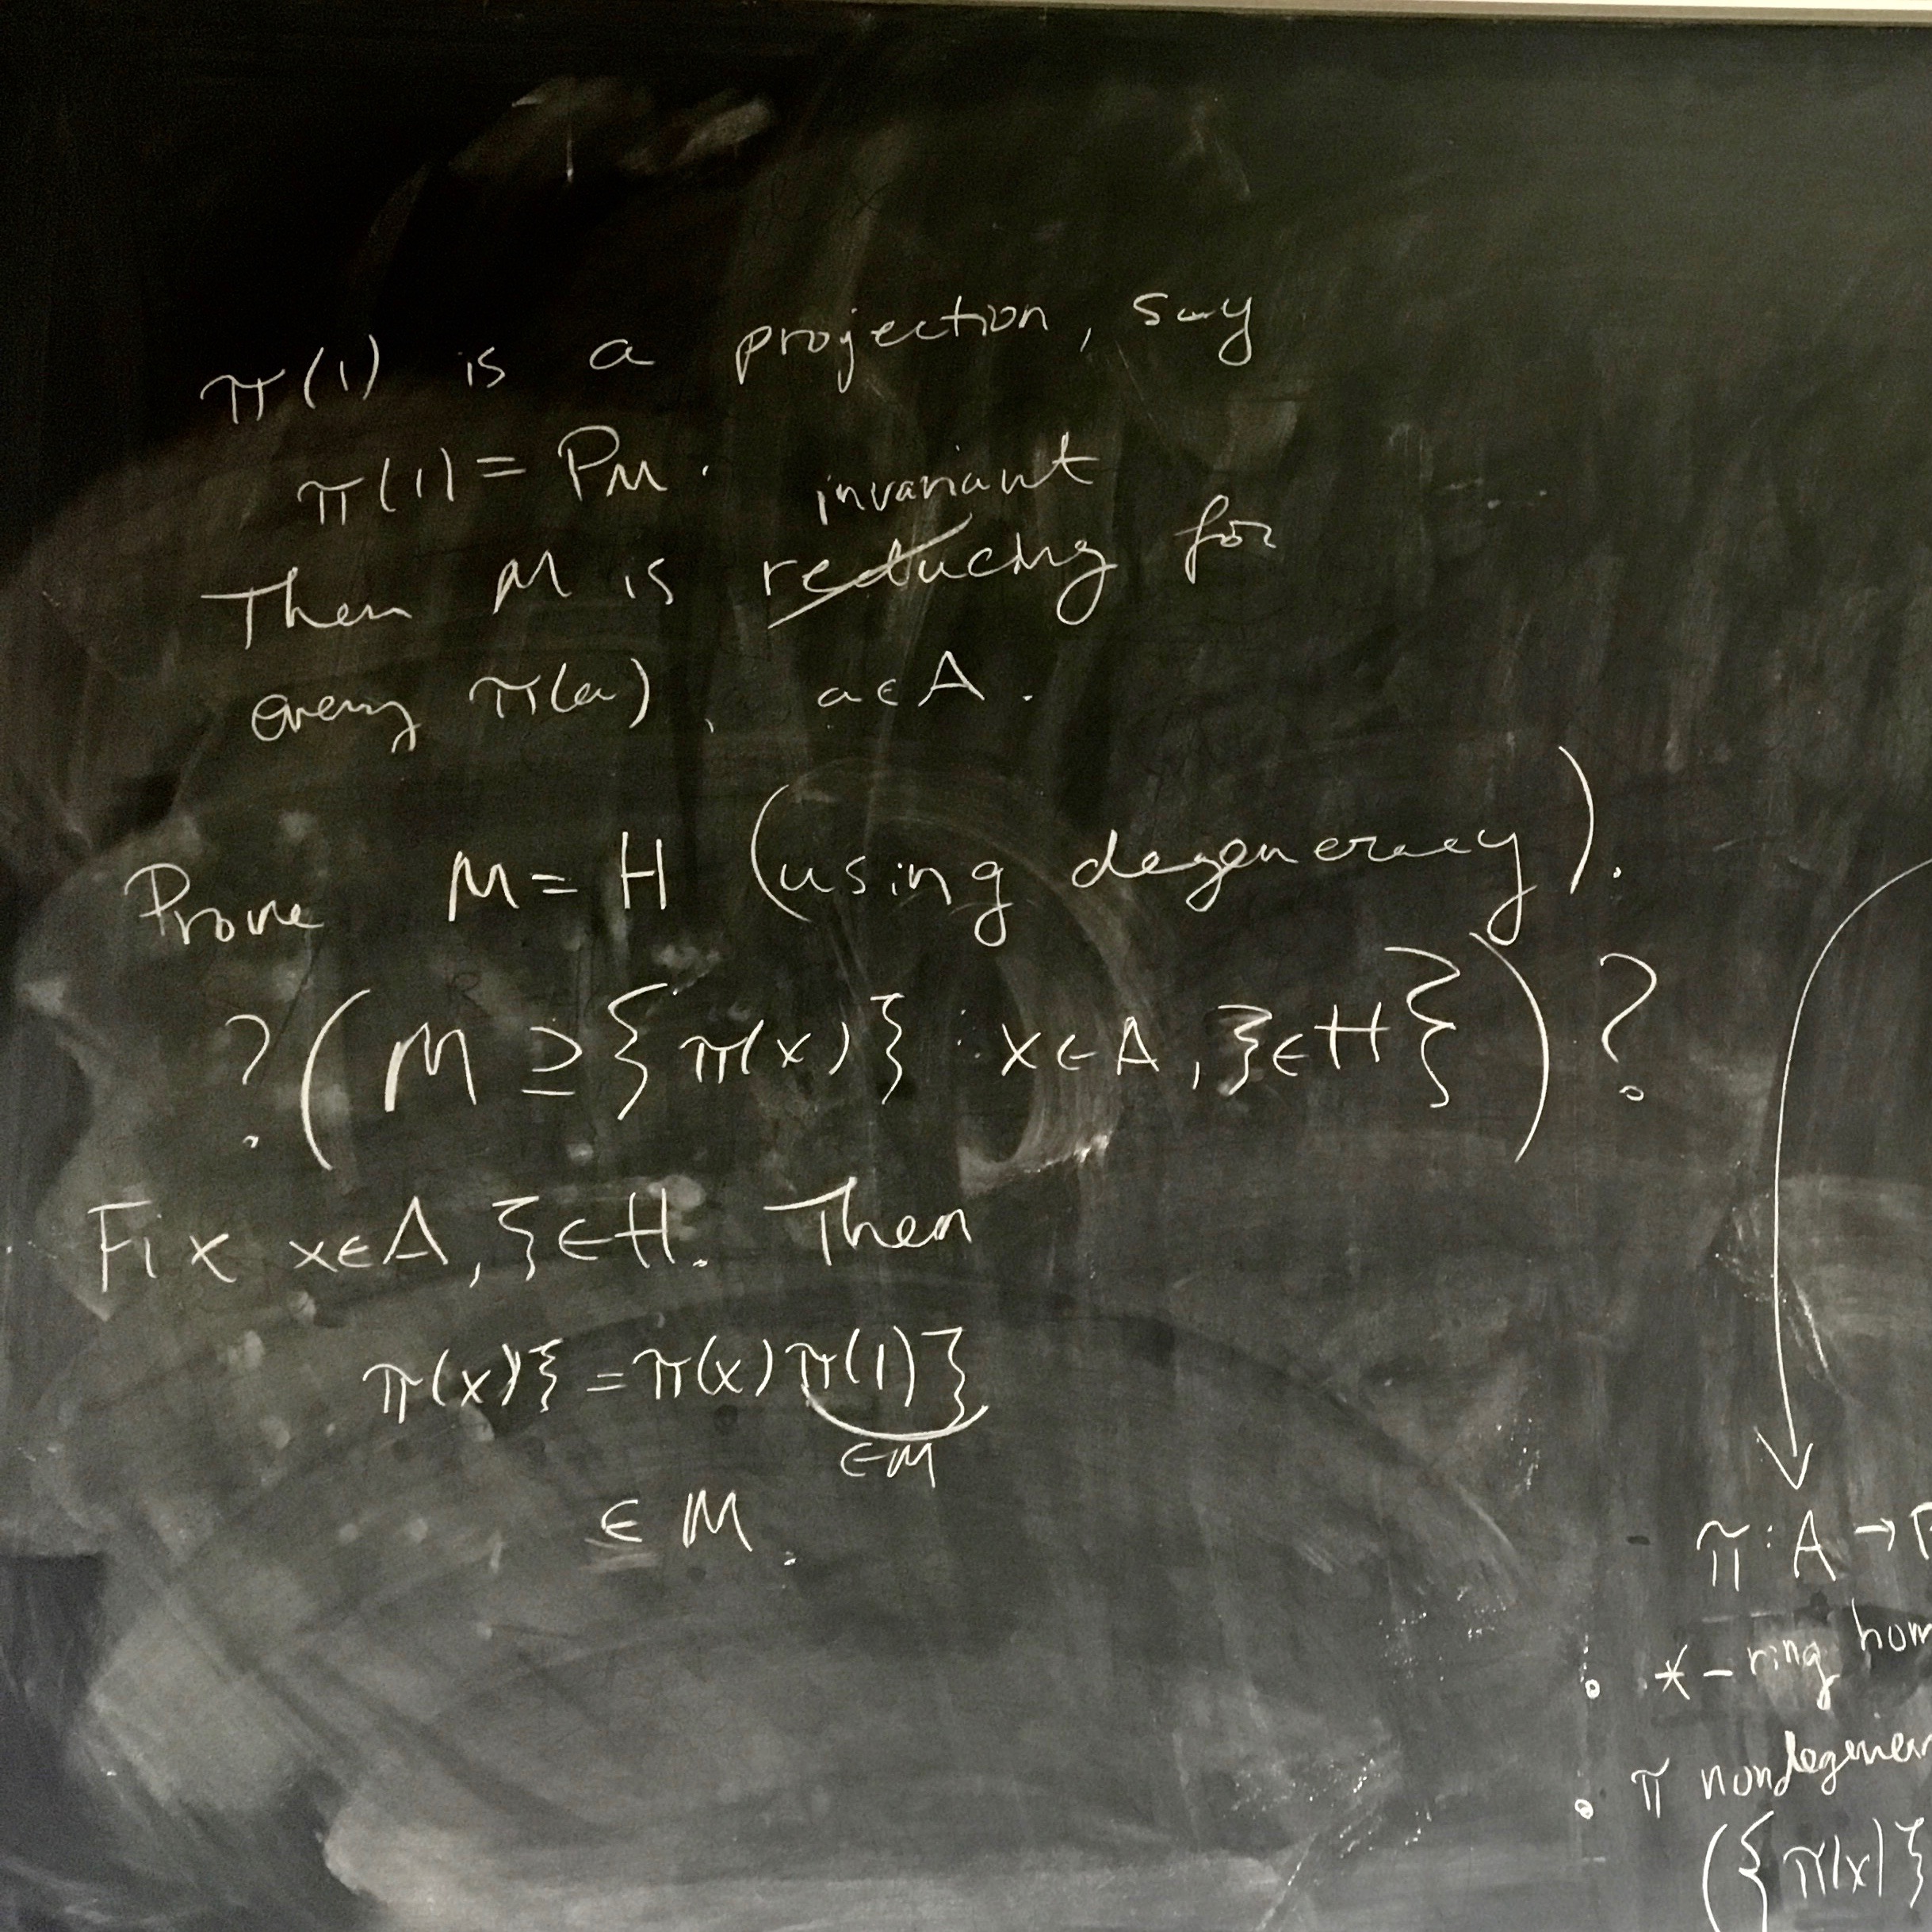 π(1) is a projection, say
π(1) = P_M.
invariant
Then M is reducing for
every π(a), a∈A.
Prove M = H (using degeneracy).
?(M ⊇ {π(x)ξ : x∈A, ξ∈H})?
Fix x∈A, ξ∈H. Then
π(x)ξ = π(x)π(1)ξ
∈M
∈ M.
π: A →
• *-ring hom
• π nondegener
({π(x)ξ